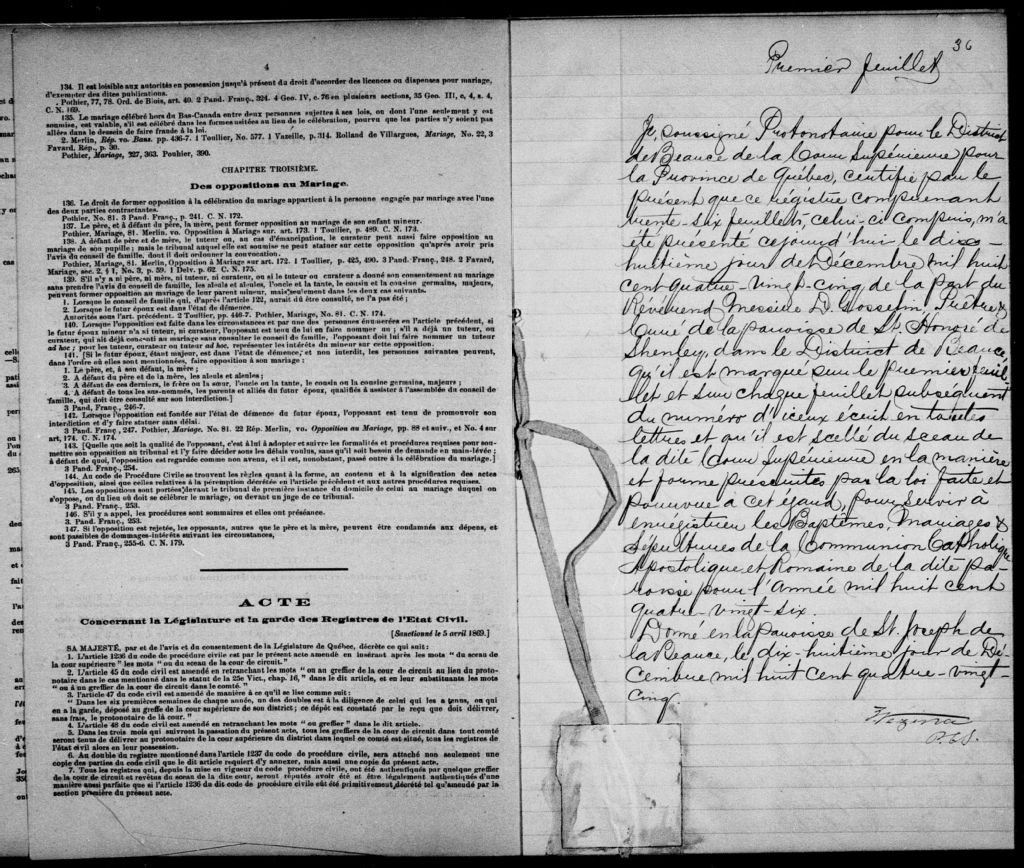 4
134. Il est loisible aux autorités en possession jusqu'à présent du droit d'accorder des licences ou dispenses pour mariage,
d'exempter des dites publications.
Pothier, 77, 78. Ord. de Blois, art. 40. 2 Pand. Franç., 324. 4 Geo. IV, c. 76 en plusieurs sections, 35 Geo. III, c, 4, s. 4,
C. N. 169.
135. Le mariage célébré hors du Bas-Canada entre deux personnes sujettes à ses lois, ou dont l'une seulement y est
soumise, est valable, s'il est célébré dans les formes usitées au lieu de la célébration, pourvu que les parties n'y soient pas
allées dans le dessein de faire fraude à la loi.
2. Merlin, Rép. vo. Bans. pp. 436-7. 1 Toullier, No. 577. 1 Vazeille, p. 314. Rolland de Villargues, Mariage, No. 22, 3
Favard, Rép., p. 30.
Pothier, Mariage, 227, 363. Pouhier, 390.
CHAPITRE TROISIÈME.
Des oppositions au Mariage.
136. Le droit de former opposition à la célébration du mariage appartient à la personne engagée par mariage avec l'une
des deux parties contractantes.
Pothier, No. 81. 3 Pand. Franç., p. 241. C. N. 172.
137. Le père, et à défaut du père, la mère, peut former opposition au mariage de son enfant mineur.
Pothier, Mariage, 81. Merlin, vo. Opposition à Mariage sur. art. 173. 1 Toullier, p. 489. C. N. 173.
138. A défaut de père et de mère, le tuteur ou, au cas d'émancipation, le curateur peut aussi faire opposition au
mariage de son pupille; mais le tribunal auquel elle est soumise ne peut statuer sur cette opposition qu'après avoir pris
l'avis du conseil de famille, dont il doit ordonner la convocation.
Pothier, Mariage, 81. Merlin, Opposition à Mariage sur art. 172. 1 Toullier, p. 425, 490. 3 Pand. Franç., 248. 2 Favard,
Mariage, sec. 2. § 1, No. 3, p. 59. 1 Delv. p. 62. C. N. 175.
139. S'il n'y a ni père, ni mère, ni tuteur, ni curateur, ou si le tuteur ou curateur a donné son consentement au mariage
sans prendre l'avis du conseil de famille, les aïeuls et aïeules, l'oncle et la tante, le cousin et la cousine germains, majeurs,
peuvent former opposition au mariage de leur parent mineur, mais seulement dans les deux cas suivants.
1. Lorsque le conseil de famille qui, d'après l'article 122, aurait dû être consulté, ne l'a pas été;
2. Lorsque le futur époux est dans l'état de démence.
Autorités sous l'art. précédent. 2 Toullier, pp. 446-7. Pothier, Mariage, No. 81. C. N. 174.
140. Lorsque l'opposition est faite dans les circonstances et par une des personnes énumérées en l'article précédent, si
le futur époux mineur n'a ni tuteur, ni curateur, l'opposant est tenu de lui en faire nommer un; s'il a déjà un tuteur, ou
curateur, qui ait déjà consenti au mariage sans consulter le conseil de famille, l'opposant doit lui faire nommer un tuteur
ad hoc; pour les tuteur, curateur ou tuteur ad hoc, représenter les intérêts du mineur sur cette opposition.
141. [Si le futur époux, étant majeur, est dans l'état de démence, et non interdit, les personnes suivantes peuvent,
dans l'ordre où elles sont mentionnées, faire opposition à son mariage:
1. Le père, et, à son défaut, la mère;
2. A défaut du père et de la mère, les aïeuls et aïeules;
3. A défaut de ces derniers, le frère ou la sœur, l'oncle ou la tante, le cousin ou la cousine germains, majeurs;
4. A défaut de tous les sus-nommés, les parents et alliés du futur époux, qualifiés à assister à l'assemblée du conseil de
famille, qui doit être consulté sur son interdiction.]
3 Pand. Franç., 246-7.
142. Lorsque l'opposition est fondée sur l'état de démence du futur époux, l'opposant est tenu de promouvoir son
interdiction et d'y faire statuer sans délai.
3 Pand. Franç., 247. Pothier, Mariage, No. 81. 22 Rép. Merlin, vo. Opposition au Mariage, pp. 88 et suiv., et No. 4 sur
art. 174. C. N. 174.
143. [Quelle que soit la qualité de l'opposant, c'est à lui à adopter et suivre les formalités et procédures requises pour sou-
mettre son opposition au tribunal et l'y faire décider sous les délais voulus, sans qu'il soit besoin de demande en main-levée;
à défaut de quoi, l'opposition est regardée comme non avenu, et il est, nonobstant, passé outre à la célébration du mariage.]
3 Pand. Franç., 254.
144. Au code de Procédure Civile se trouvent les règles quant à la forme, au contenu et à la signification des actes
d'opposition, ainsi que celles relatives à la péremption décrétée en l'article précédent et aux autres procédures requises.
145. Les oppositions sont portées devant le tribunal de première instance du domicile de celui au mariage duquel on
s'oppose, ou du lieu où doit se célébrer le mariage, ou devant un juge de ce tribunal.
3 Pand. Franç., 253.
146. S'il y a appel, les procédures sont sommaires et elles ont préséance.
3. Pand. Franç., 253.
147. Si l'opposition est rejetée, les opposants, autres que le père et la mère, peuvent être condamnés aux dépens, et
sont passibles de dommages-intérêts suivant les circonstances,
3 Pand. Franç., 255-6. C. N. 179.
ACTE
Concernant la Législature et la garde des Registres de l'Etat Civil.
[Sanctionné le 5 avril 1869.]
SA MAJESTÉ, par et de l'avis et du consentement de la Législature de Québec, décrète ce qui suit:
1. L'article 1236 du code de procédure civile est par le présent acte amendé en insérant après les mots "du sceau de
la cour supérieure" les mots "ou du sceau de la cour de circuit."
2. L'article 45 du code civil est amendé en retranchant les mots "ou au greffier de la cour de circuit au lieu du proto-
notaire dans le cas mentionné dans le statut de la 25e Vict., chap. 16," dans le dit article, et en leur substituants les mots
"ou à un greffier de la cour de circuit dans le comté."
3. l'article 47 du code civil est amendé de manière à ce qu'il se lise comme suit:
"Dans les six premières semaines de chaque année, un des doubles est à la diligence de celui qui les a tenus, on qui
en a la garde, déposé au greffe de la cour supérieure de son district; ce dépôt est constaté par le reçu que doit délivrer,
sans frais, le protonotaire de la cour."
4. L'article 48 du code civil est amendé en retranchant les mots "ou greffier" dans le dit article.
5. Dans les trois mois qui suivront la passation du présent acte, tous les greffiers de la cour de circuit dans tout comté
seront tenus de délivrer au protonotaire de la cour supérieure du district dans lequel ce comté est situé, tous les registres de
l'état civil alors en leur possession.
6. Au double du registre mentionné dans l'article 1237 du code de procédure civile, sera attaché non seulement une
copie des parties du code civil que le dit article requiert d'y annexer, mais aussi une copie du présent acte.
7. Tous les registres qui, depuis la mise en vigueur du code procédure civile, ont été authentiqués par quelque greffier
de la cour de circuit et revêtus du sceau de la dite cour, seront réputés avoir été et être légalement authentiqués d'une
manière aussi parfaite que si l'article 1236 du dit code de procédure civile eût été primitivement décrété tel qu'amendé par la
section première du présent acte.
36
Premier feuillet
Je, soussigné Protonotaire pour le District
de Beauce de la Cour Supérieure pour
la Province de Québec, certifie par le
présent que ce régistre comprenant
trente-six feuillets, celui-ci compris, m'a
été présenté ce jourd'hui le dix-
huitième jour de Décembre mil huit
cent quatre-vingt-cinq de la part du
Révérend Messire D. Gosselin, Prêtre &
Curé de la paroisse de St. Honoré de
Shenley, dans le District de Beauce,
qu'il est marqué sur le premier feuil-
let et sur chaque feuillet subséquent
du numéro d'iceux écrit en toutes
lettres et qu'il est scellé du sceau de
la dite Cour Supérieure en la manière
et forme prescrites par la loi faite et
pourvue à cet égard, pour servir à
enregistrer les Baptêmes, Mariages &
Sépultures de la Communion Catholique
Apostolique et Romaine de la dite pa-
roisse pour l'Année mil huit cent
quatre-vingt-six.
Donné en la paroisse de St. Joseph de
la Beauce, le dix-huitième jour de Dé-
cembre mil huit cent quatre-vingt-
cinq
Vezina
P.C.S.